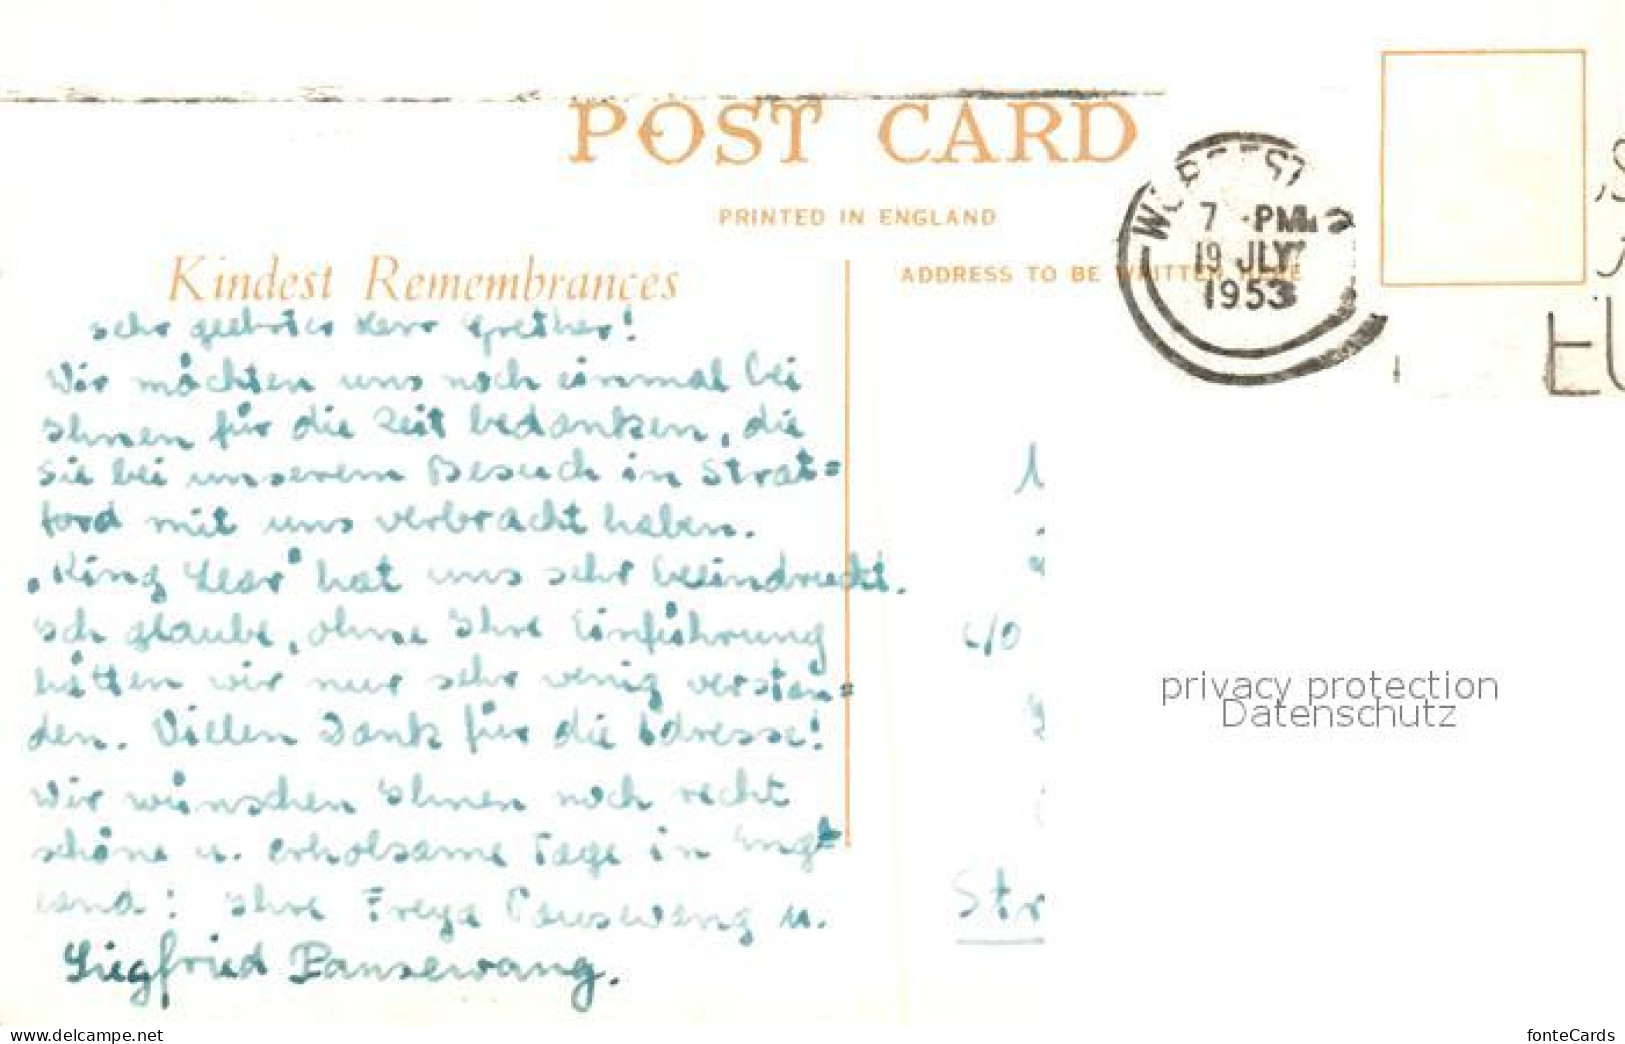 POST CARD
PRINTED IN ENGLAND
7 PM
19 JLY
1953
Kindest Remembrances
ADDRESS TO BE WRITTEN HERE
sehr geehrter Herr Grether!
Wir möchten uns noch einmal bei
Ihnen für die Zeit bedanken, die
Sie bei unserem Besuch in Strat=
ford mit uns verbracht haben.
„King Lear" hat uns sehr beeindruckt.
Ich glaube, ohne Ihre Einführung
hätten wir nur sehr wenig verstan=
den. Vielen Dank für die Adresse!
Wir wünschen Ihnen noch recht
schöne u. erholsame Tage in Engl
land! Ihre Freya Pausewang u.
Siegfried Pausewang.
c/o
Str
privacy protection
Datenschutz
www.delcampe.net
fonteCards